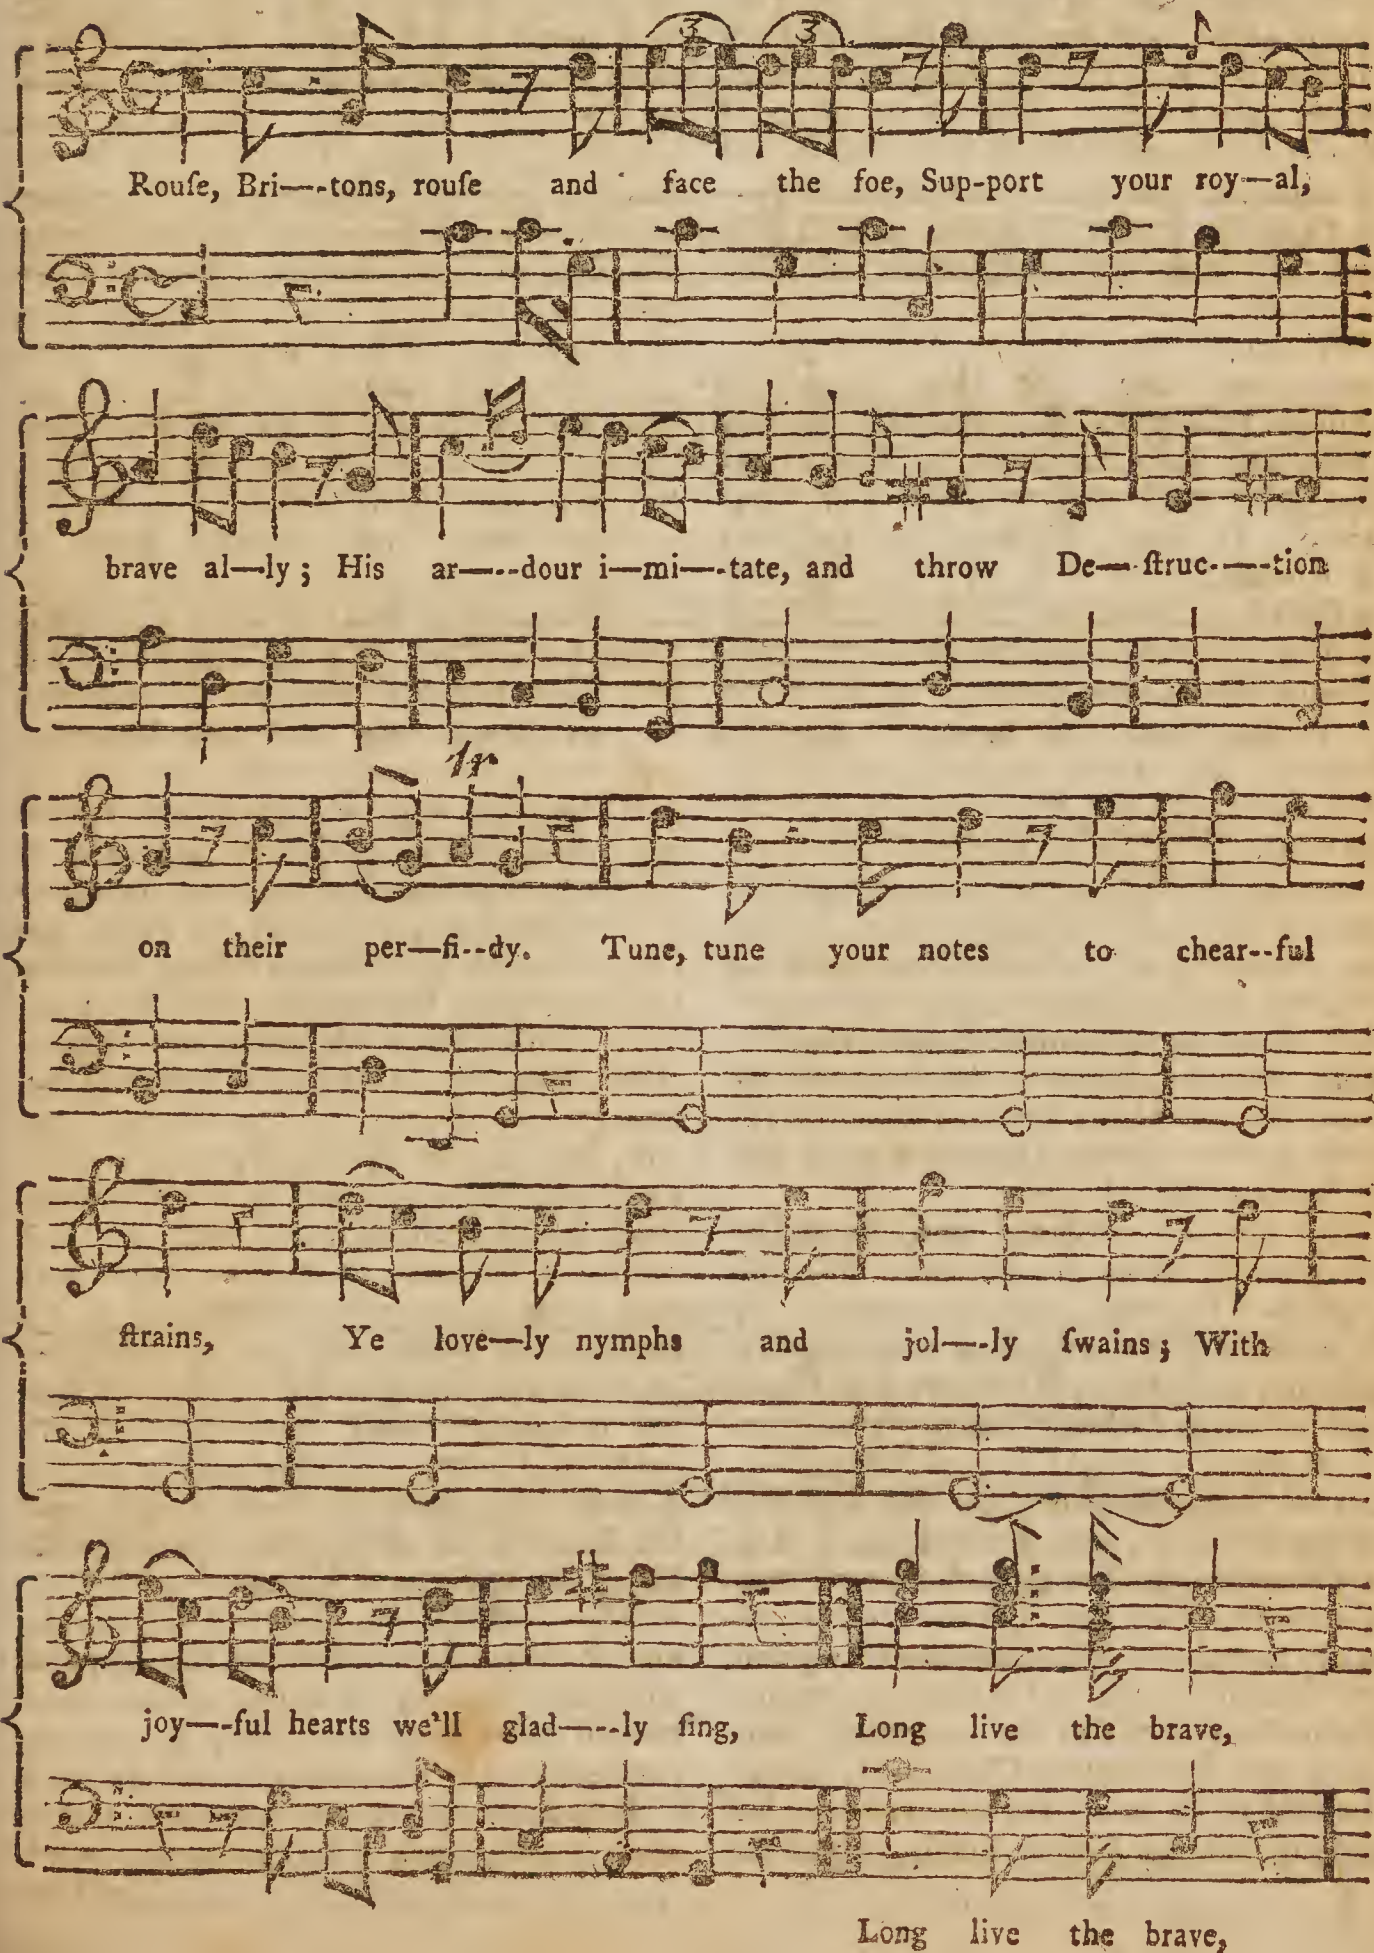 3 3
Rouſe, Bri—--tons, rouſe and face the foe, Sup-port your roy—al,
brave al—-ly; His ar—--dour i—mi—-tate, and throw De—-ſtruc-—-tion
tr
on their per—fi--dy. Tune, tune your notes to chear--ful
ſtrains, Ye love—ly nymphs and jol—-ly ſwains; With
joy—-ful hearts we'll glad—--ly ſing, Long live the brave,
Long live the brave,